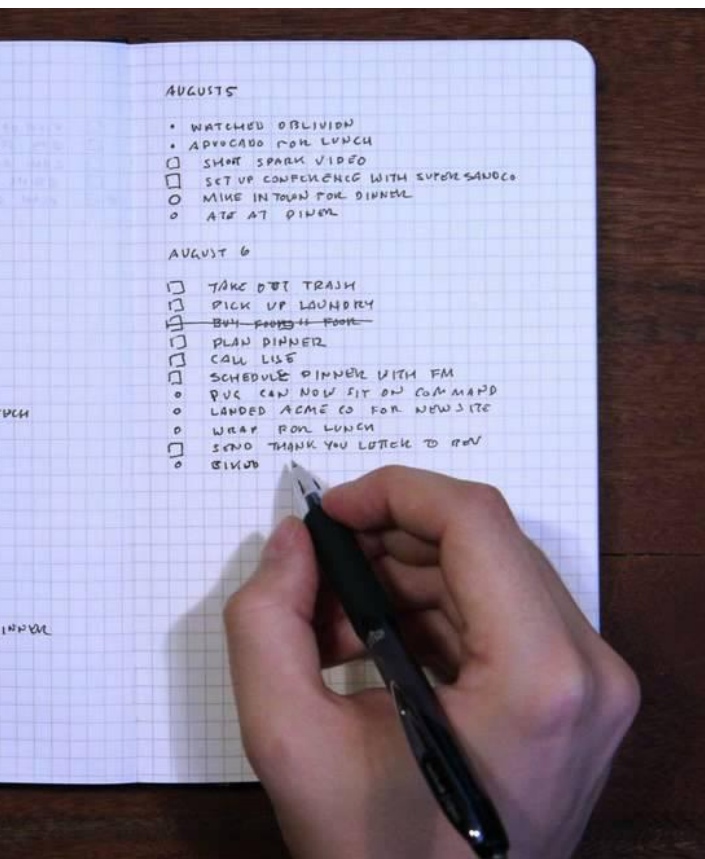 AUGUST 5
• WATCHED OBLIVION
• ADVOCADO FOR LUNCH
SHOOT SPARK VIDEO
SET UP CONFERENCE WITH SUPERSANDCO
MIKE IN TOWN FOR DINNER
ATE AT DINER
AUGUST 6
TAKE OUT TRASH
PICK UP LAUNDRY
BUY
PLAN DINNER
CALL LISE
SCHEDULE DINNER WITH FM
PUG CAN NOW SIT ON COMMAND
LANDED ACME CO FOR NEW SITE
WRAP FOR LUNCH
SEND THANK YOU LETTER TO
INNER